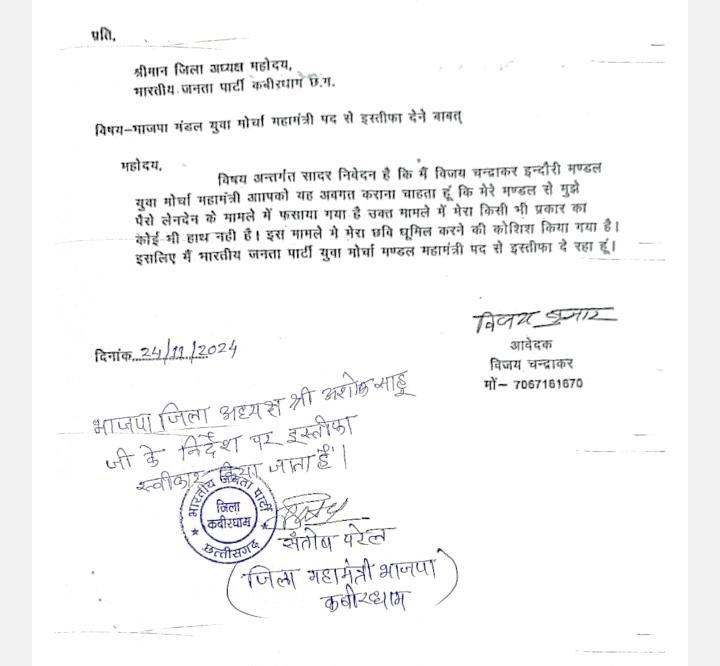 प्रति,
श्रीमान जिला अध्यक्ष महोदय,
भारतीय जनता पार्टी कबीरधाम छ.ग.
विषय–भाजपा मंडल युवा मोर्चा महामंत्री पद से इस्तीफा देने बाबत्
महोदय,
विषय अन्तर्गत सादर निवेदन है कि मैं विजय चन्द्राकर इन्दौरी मण्डल
युवा मोर्चा महामंत्री आापको यह अवगत कराना चाहता हूं कि मेरे मण्डल से मुझे
पैसे लेनदेन के मामले में फसाया गया है उक्त मामले में मेरा किसी भी प्रकार का
कोई भी हाथ नही है। इस मामले मे मेरा छवि धूमिल करने की कोशिश किया गया है।
इसलिए मैं भारतीय जनता पार्टी युवा मोर्चा मण्डल महामंत्री पद से इस्तीफा दे रहा हूं।
विजय कुमार
आवेदक
विजय चन्द्राकर
मों– 7067161670
दिनांक..24/11/2024
भाजपा जिला अध्यक्ष श्री अशोक साहू
जी के निर्देश पर इस्तीफा
स्वीकार किया जाता है।
भारतीय जनता पार्टी
जिला
कबीरधाम
छत्तीसगढ़
संतोष पटेल
(जिला महामंत्री भाजपा
कबीरधाम)